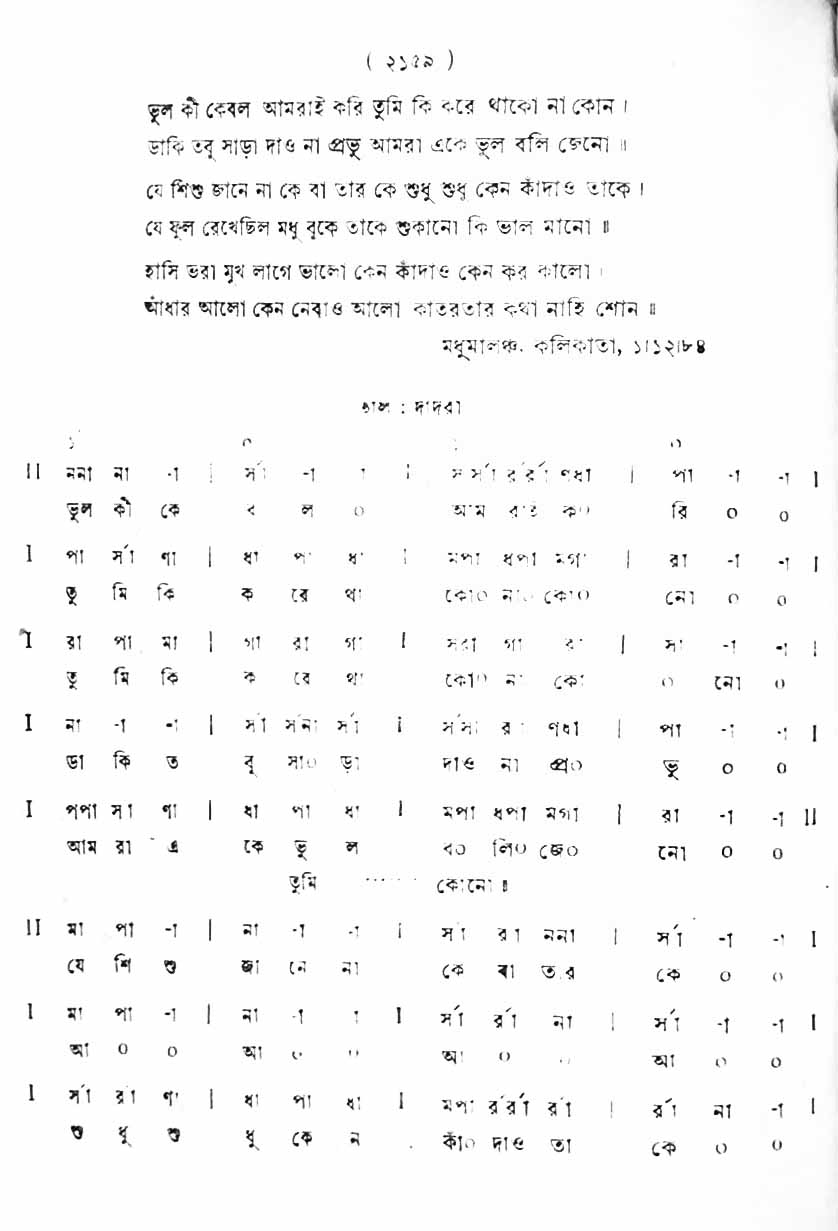 ( ২১৫৯ )
ভুল কী কেবল আমরাই করি তুমি কি করে থাকো না কোন ।
ডাকি তবু সাড়া দাও না প্রভু আমরা একে ভুল বলি জেনো ॥
যে শিশু জানে না কে বা তার কে শুধু শুধু কেন কাঁদাও তাকে ।
যে ফুল রেখেছিল মধু বুকে তাকে শুকানো কি ভাল মানো ॥
হাসি ভরা মুখ লাগে ভালো কেন কাঁদাও কেন কর কালো ।
আঁধার আলো কেন নেবাও আলো কাতরতার কথা নাহি শোন ॥
মধুমালঞ্চ, কলিকাতা, ১।১২।৮৪
তাল : দাদরা
১ ০ ১ ০
II ননা না -া | র্সা -া া I র্সর্সা র্রর্রা ণধা | পা -া -া I
ভুল কী কে ব ল ০ আম রাই ক০ রি ০ ০
I পা র্সা ণা | ধা পা ধা I মপা ধপা মগা | রা -া -া I
তু মি কি ক রে থা কো০ না০ কো০ নো ০ ০
I রা পা মা | গা রা গা I সরা গা রা | সা -া -া I
তু মি কি ক রে থা কো০ না কো ০ নো ০
I না -া -া | র্সা র্সনা র্সা I র্সর্সা রা ণধা | পা -া -া I
ডা কি ত বু সা০ ড়া দাও না প্র০ ভু ০ ০
I পপা সা ণা | ধা পা ধা I মপা ধপা মগা | রা -া -া II
আম রা এ কে ভু ল ব০ লি০ জে০ নো ০ ০
তুমি ...... কোনো ॥
II মা পা -া | না -া -া I র্সা রা ননা | র্সা -া -া I
যে শি শু জা নে না কে বা তার কে ০ ০
I মা পা -া | না -া া I র্সা র্রা না | র্সা -া -া I
আ ০ ০ আ ০ ০ আ ০ ০ আ ০ ০
I র্সা রা ণা | ধা পা ধা I মপা র্রর্রা র্রা | র্রা না -া I
শু ধু শু ধু কে ন কাঁ০ দাও তা কে ০ ০